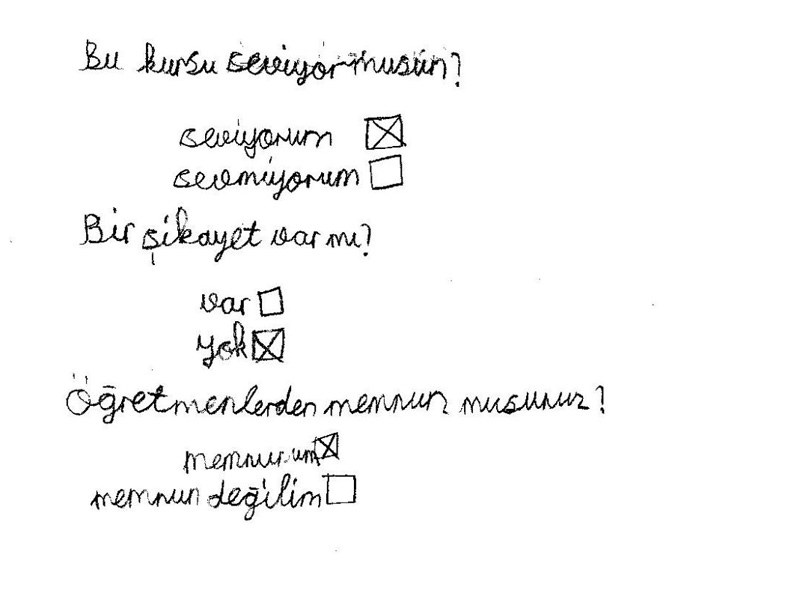 Bu kursu seviyor musun?
seviyorum ☒
sevmiyorum ☐
Bir şikayet var mı?
var ☐
yok ☒
Öğretmenlerden memnun musunuz?
memnunum ☒
memnun değilim ☐